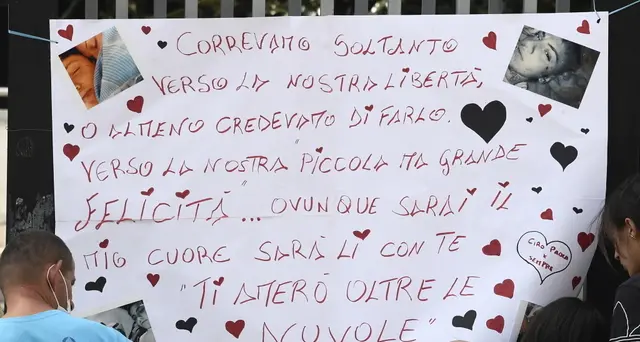 CORREVAMO SOLTANTO
VERSO LA NOSTRA LIBERTÀ,
O ALMENO CREDEVAMO DI FARLO.
VERSO LA NOSTRA "PICCOLA MA GRANDE
FELICITÀ"... OVUNQUE SARAI IL
MIO CUORE SARÀ LÌ CON TE
"TI AMERÒ OLTRE LE
NUVOLE"
CIRO PAOLA
X SEMPRE